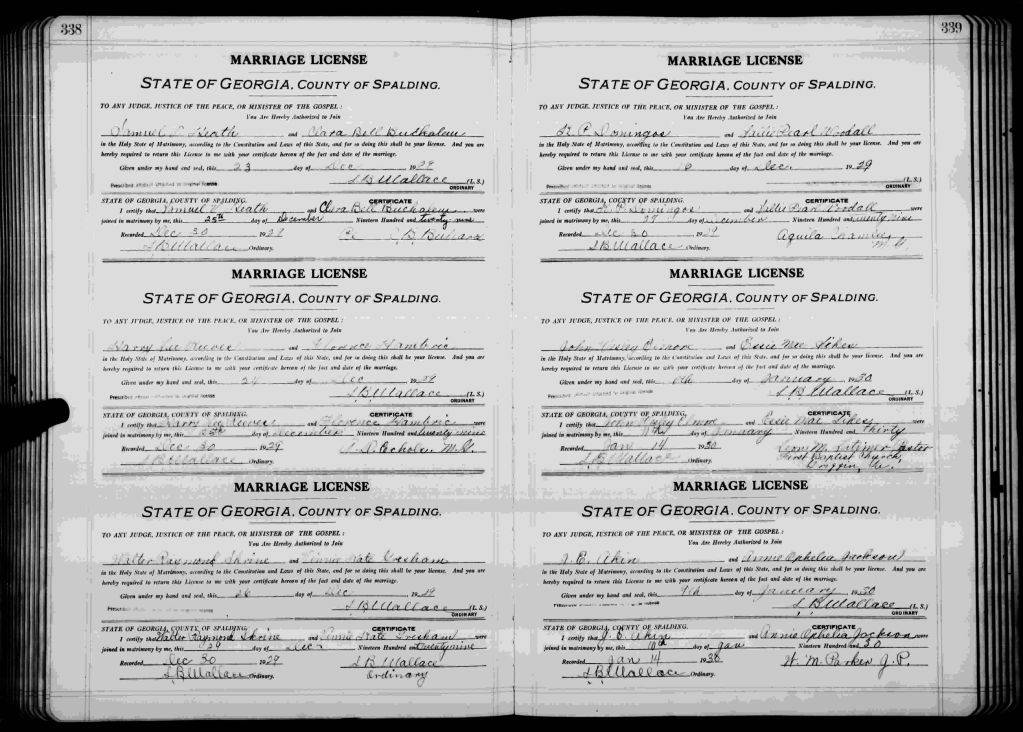 338
MARRIAGE LICENSE
STATE OF GEORGIA, COUNTY OF SPALDING.
TO ANY JUDGE, JUSTICE OF THE PEACE, OR MINISTER OF THE GOSPEL:
You Are Hereby Authorized to Join
Samuel Heath and Clara Bell
in the Holy State of Matrimony, according to the Constitution and Laws of this State, and for so doing this shall be your license. And you are
hereby required to return this License to me with your certificate hereon of the fact and date of the marriage.
Given under my hand and seal, this 23 day of Dec 1929
Prescribed L B Wallace (L. S.)
ORDINARY
STATE OF GEORGIA, COUNTY OF SPALDING. CERTIFICATE
I certify that Samuel Heath and Clara Bell were
joined in matrimony by me, this 25th day of December Nineteen Hundred and twenty nine
Recorded Dec 30 1929
L B Wallace Ordinary.
MARRIAGE LICENSE
STATE OF GEORGIA, COUNTY OF SPALDING.
TO ANY JUDGE, JUSTICE OF THE PEACE, OR MINISTER OF THE GOSPEL:
You Are Hereby Authorized to Join
Harry Lee Reeves and Florence Hambric
in the Holy State of Matrimony, according to the Constitution and Laws of this State, and for so doing this shall be your license. And you are
hereby required to return this License to me with your certificate hereon of the fact and date of the marriage.
Given under my hand and seal, this 24 day of Dec 1929
Prescribed L B Wallace (L. S.)
ORDINARY
STATE OF GEORGIA, COUNTY OF SPALDING. CERTIFICATE
I certify that Harry Lee Reeves and Florence Hambric were
joined in matrimony by me, this 25th day of December Nineteen Hundred and twenty nine
Recorded Dec 30 1929 M.G.
L B Wallace Ordinary.
MARRIAGE LICENSE
STATE OF GEORGIA, COUNTY OF SPALDING.
TO ANY JUDGE, JUSTICE OF THE PEACE, OR MINISTER OF THE GOSPEL:
You Are Hereby Authorized to Join
Walter Raymond Shrine and Kate Gresham
in the Holy State of Matrimony, according to the Constitution and Laws of this State, and for so doing this shall be your license. And you are
hereby required to return this License to me with your certificate hereon of the fact and date of the marriage.
Given under my hand and seal, this 26 day of Dec 1929
L B Wallace (L. S.)
ORDINARY
STATE OF GEORGIA, COUNTY OF SPALDING. CERTIFICATE
I certify that Walter Raymond Shrine and Kate Gresham were
joined in matrimony by me, this 29 day of Dec Nineteen Hundred and Twenty nine
Recorded Dec 30 1929 L B Wallace
L B Wallace Ordinary. Ordinary
339
MARRIAGE LICENSE
STATE OF GEORGIA, COUNTY OF SPALDING.
TO ANY JUDGE, JUSTICE OF THE PEACE, OR MINISTER OF THE GOSPEL:
You Are Hereby Authorized to Join
P. Domingos and Pearl Woodall
in the Holy State of Matrimony, according to the Constitution and Laws of this State, and for so doing this shall be your license. And you are
hereby required to return this License to me with your certificate hereon of the fact and date of the marriage.
Given under my hand and seal, this day of Dec. 1929
(L. S.)
ORDINARY
STATE OF GEORGIA, COUNTY OF SPALDING. CERTIFICATE
I certify that P. Domingos and Pearl Woodall were
joined in matrimony by me, this 29 day of December Nineteen Hundred and twenty nine
Recorded Dec 30 1929 Aquila
L B Wallace Ordinary. M.G.
MARRIAGE LICENSE
STATE OF GEORGIA, COUNTY OF SPALDING.
TO ANY JUDGE, JUSTICE OF THE PEACE, OR MINISTER OF THE GOSPEL:
You Are Hereby Authorized to Join
John and Essie Mae
in the Holy State of Matrimony, according to the Constitution and Laws of this State, and for so doing this shall be your license. And you are
hereby required to return this License to me with your certificate hereon of the fact and date of the marriage.
Given under my hand and seal, this day of January 1930
L B Wallace (L. S.)
ORDINARY
STATE OF GEORGIA, COUNTY OF SPALDING. CERTIFICATE
I certify that John and Essie Mae were
joined in matrimony by me, this day of January Nineteen Hundred and thirty
Recorded Jan 14 1930 Pastor
L B Wallace Ordinary. First Baptist Church,
Griffin, Ga.
MARRIAGE LICENSE
STATE OF GEORGIA, COUNTY OF SPALDING.
TO ANY JUDGE, JUSTICE OF THE PEACE, OR MINISTER OF THE GOSPEL:
You Are Hereby Authorized to Join
J. E. Akin and Annie Ophelia Jackson
in the Holy State of Matrimony, according to the Constitution and Laws of this State, and for so doing this shall be your license. And you are
hereby required to return this License to me with your certificate hereon of the fact and date of the marriage.
Given under my hand and seal, this 9th day of January 1930
L B Wallace (L. S.)
ORDINARY
STATE OF GEORGIA, COUNTY OF SPALDING. CERTIFICATE
I certify that J. E. Akin and Annie Ophelia Jackson were
joined in matrimony by me, this 10th day of Jan Nineteen Hundred and 30
Recorded Jan 14 1930 W. M. Parker J. P.
L B Wallace Ordinary.